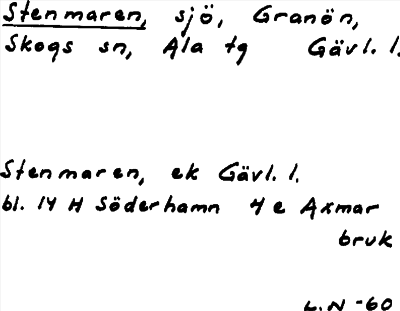 Stenmaren, sjö, Granön,
Skogs sn, Ala tg Gävl. l.
Stenmaren, ek Gävl. l.
bl. 14 H Söderhamn 4 e Axmar
bruk
L.N -60